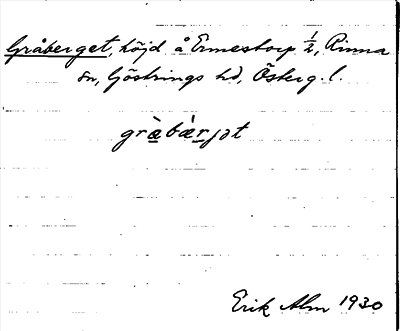 Gråberget, höjd å Ermestorp ½, Rinna
sn, Göstrings hd, Österg. l.
gràbæ̀rjət
Erik Alm 1930